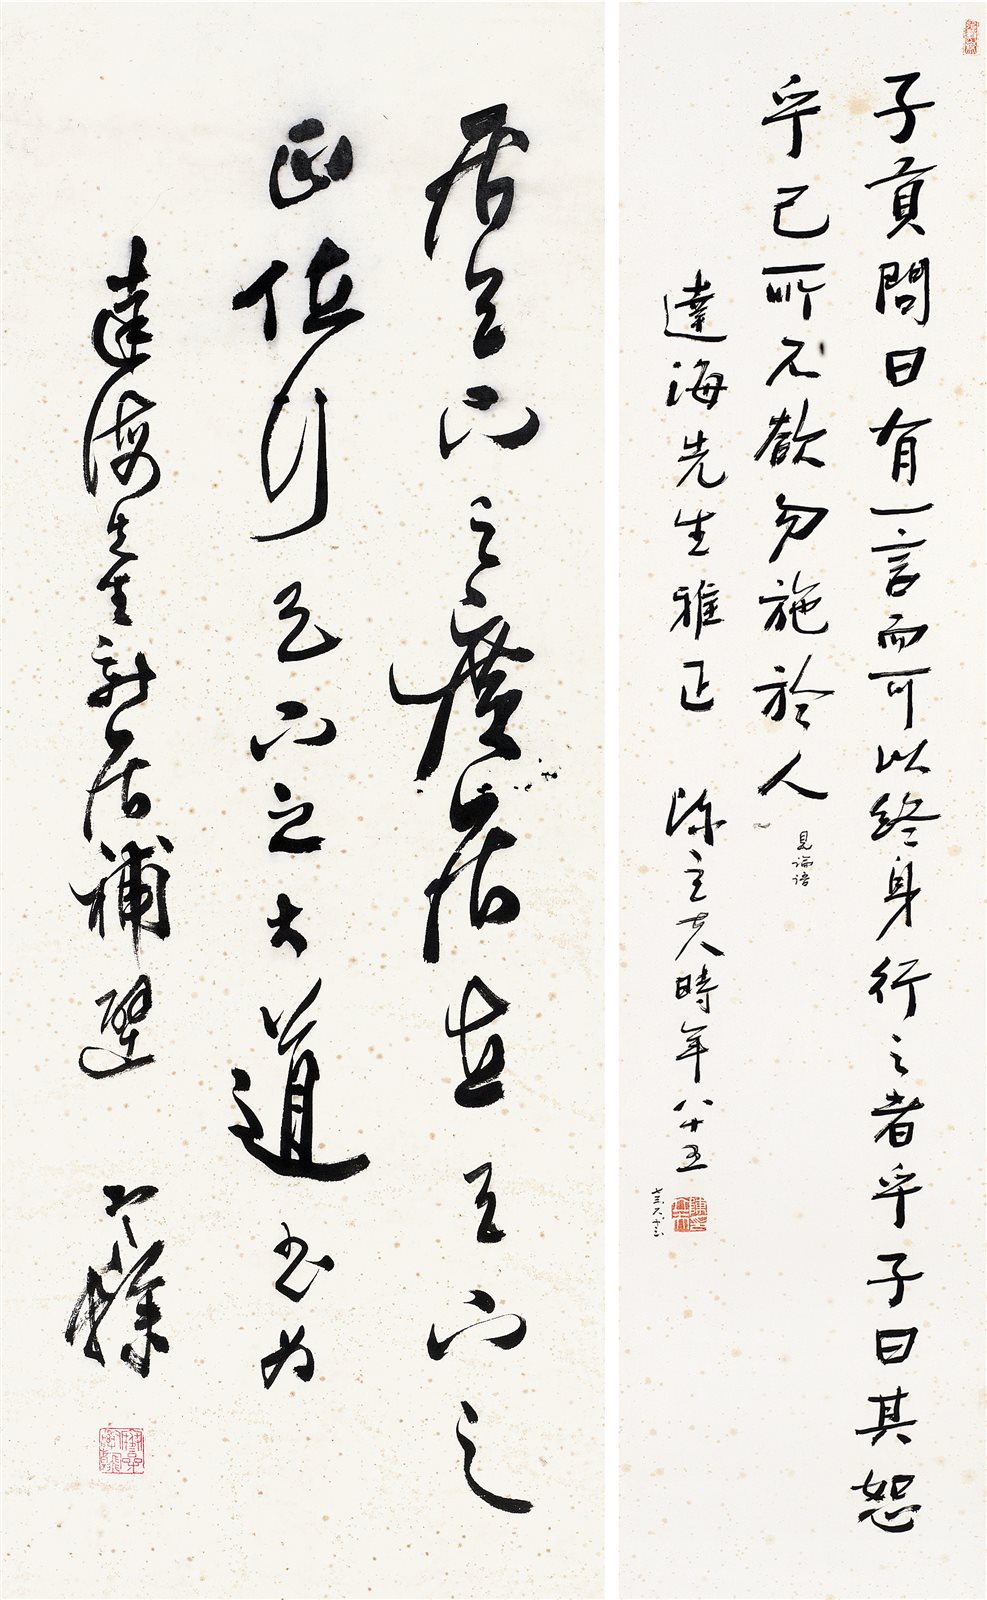 子貢問曰有一言而可以終身行之者乎子曰其恕
乎己所不欲勿施於人
見論語
達海先生雅正 陳立夫時年八十五
居天下之廣居立天下之
正位行天下之大道書為
達海先生新居補壁